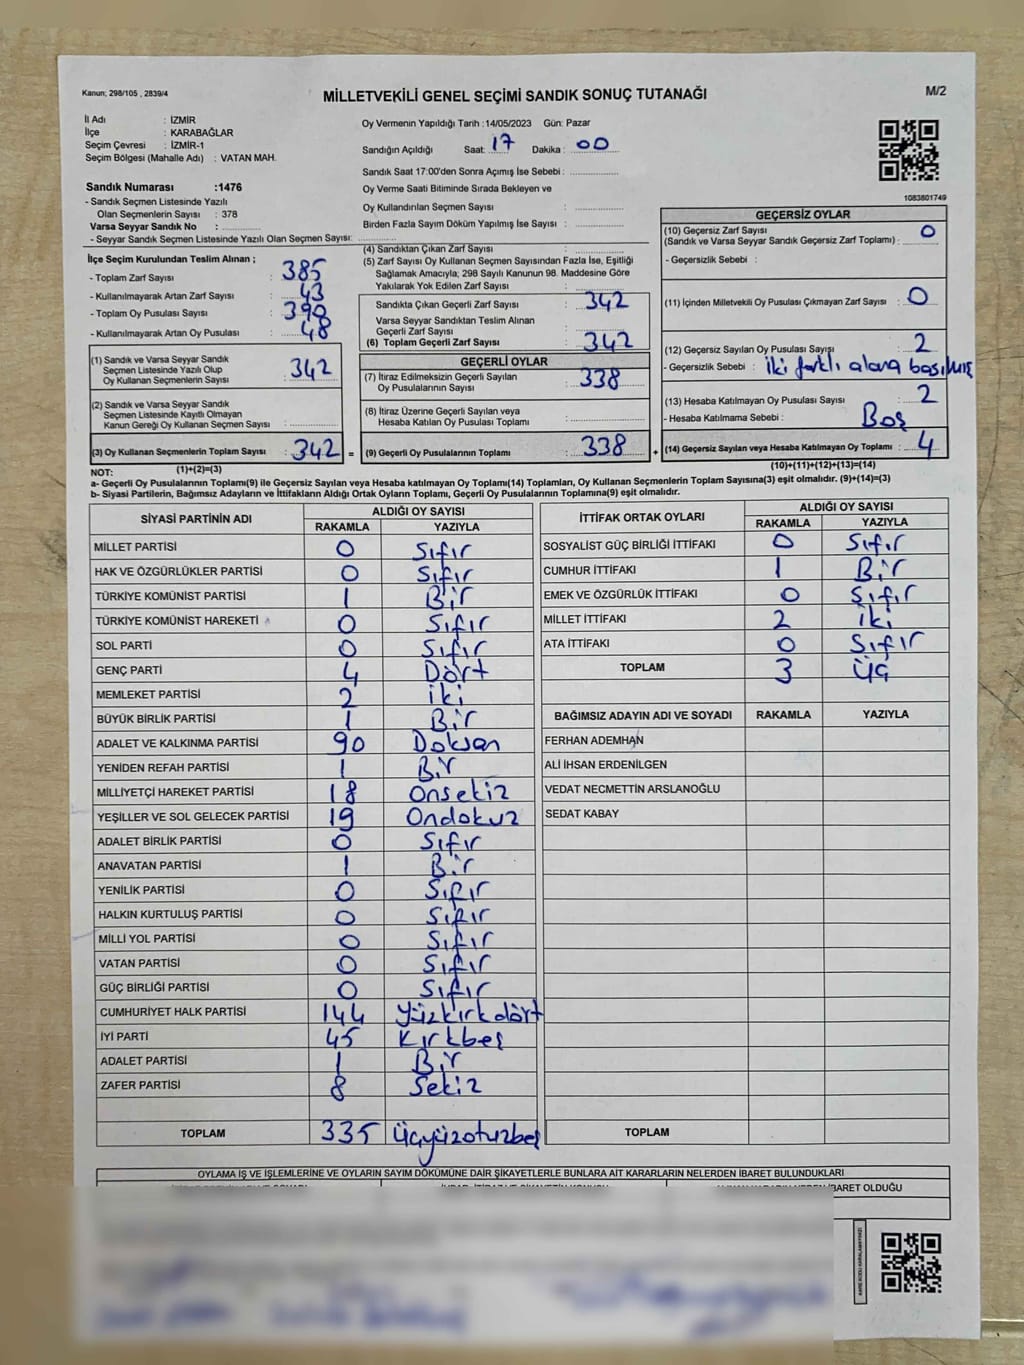 Kanun; 298/105 , 2839/4
MİLLETVEKİLİ GENEL SEÇİMİ SANDIK SONUÇ TUTANAĞI
M/2
İl Adı : İZMİR
İlçe : KARABAĞLAR
Seçim Çevresi : İZMİR-1
Seçim Bölgesi (Mahalle Adı) : VATAN MAH.
Sandık Numarası :1476
- Sandık Seçmen Listesinde Yazılı
Olan Seçmenlerin Sayısı : 378
Varsa Seyyar Sandık No :
- Seyyar Sandık Seçmen Listesinde Yazılı Olan Seçmen Sayısı:
Oy Vermenin Yapıldığı Tarih :14/05/2023 Gün: Pazar
Sandığın Açıldığı Saat: 17 Dakika : 00
Sandık Saat 17:00'den Sonra Açımış İse Sebebi :
Oy Verme Saati Bitiminde Sırada Bekleyen ve
Oy Kullandırılan Seçmen Sayısı :
Birden Fazla Sayım Döküm Yapılmış İse Sayısı :
1083801749
İlçe Seçim Kurulundan Teslim Alınan ;
- Toplam Zarf Sayısı : 385
- Kullanılmayarak Artan Zarf Sayısı : 43
- Toplam Oy Pusulası Sayısı : 390
- Kullanılmayarak Artan Oy Pusulası : 48
(1) Sandık ve Varsa Seyyar Sandık
Seçmen Listesinde Yazılı Olup
Oy Kullanan Seçmenlerin Sayısı : 342
(2) Sandık ve Varsa Seyyar Sandık
Seçmen Listesinde Kayıtlı Olmayan
Kanun Gereği Oy Kullanan Seçmen Sayısı :
(3) Oy Kullanan Seçmenlerin Toplam Sayısı : 342 =
(1)+(2)=(3)
(4) Sandıktan Çıkan Zarf Sayısı :
(5) Zarf Sayısı Oy Kullanan Seçmen Sayısından Fazla İse, Eşitliği
Sağlamak Amacıyla; 298 Sayılı Kanunun 98. Maddesine Göre
Yakılarak Yok Edilen Zarf Sayısı :
Sandıkta Çıkan Geçerli Zarf Sayısı : 342
Varsa Seyyar Sandıktan Teslim Alınan
Geçerli Zarf Sayısı :
(6) Toplam Geçerli Zarf Sayısı : 342
GEÇERLİ OYLAR
(7) İtiraz Edilmeksizin Geçerli Sayılan
Oy Pusulalarının Sayısı : 338
(8) İtiraz Üzerine Geçerli Sayılan veya
Hesaba Katılan Oy Pusulası Toplamı :
(9) Geçerli Oy Pusulalarının Toplamı : 338 +
GEÇERSİZ OYLAR
(10) Geçersiz Zarf Sayısı
(Sandık ve Varsa Seyyar Sandık Geçersiz Zarf Toplamı) : 0
- Geçersizlik Sebebi :
(11) İçinden Milletvekili Oy Pusulası Çıkmayan Zarf Sayısı : 0
(12) Geçersiz Sayılan Oy Pusulası Sayısı : 2
- Geçersizlik Sebebi : iki farklı alana basılmış
(13) Hesaba Katılmayan Oy Pusulası Sayısı : 2
- Hesaba Katılmama Sebebi : Boş
(14) Geçersiz Sayılan veya Hesaba Katılmayan Oy Toplamı : 4
(10)+(11)+(12)+(13)=(14)
NOT:
a- Geçerli Oy Pusulalarının Toplamı(9) ile Geçersiz Sayılan veya Hesaba Katılmayan Oy Toplamı(14) Toplamları, Oy Kullanan Seçmenlerin Toplam Sayısına(3) eşit olmalıdır. (9)+(14)=(3)
b- Siyasi Partilerin, Bağımsız Adayların ve İttifakların Aldığı Ortak Oyların Toplamı, Geçerli Oy Pusulalarının Toplamına(9) eşit olmalıdır.
SİYASİ PARTİNİN ADI ALDIĞI OY SAYISI
RAKAMLA YAZIYLA
MİLLET PARTİSİ 0 Sıfır
HAK VE ÖZGÜRLÜKLER PARTİSİ 0 Sıfır
TÜRKİYE KOMÜNİST PARTİSİ 1 Bir
TÜRKİYE KOMÜNİST HAREKETİ 0 Sıfır
SOL PARTİ 0 Sıfır
GENÇ PARTİ 4 Dört
MEMLEKET PARTİSİ 2 iki
BÜYÜK BİRLİK PARTİSİ 1 Bir
ADALET VE KALKINMA PARTİSİ 90 Doksan
YENİDEN REFAH PARTİSİ 1 Bir
MİLLİYETÇİ HAREKET PARTİSİ 18 Onsekiz
YEŞİLLER VE SOL GELECEK PARTİSİ 19 Ondokuz
ADALET BİRLİK PARTİSİ 0 Sıfır
ANAVATAN PARTİSİ 1 Bir
YENİLİK PARTİSİ 0 Sıfır
HALKIN KURTULUŞ PARTİSİ 0 Sıfır
MİLLİ YOL PARTİSİ 0 Sıfır
VATAN PARTİSİ 0 Sıfır
GÜÇ BİRLİĞİ PARTİSİ 0 Sıfır
CUMHURİYET HALK PARTİSİ 144 Yüzkırkdört
İYİ PARTİ 45 Kırkbeş
ADALET PARTİSİ 1 Bir
ZAFER PARTİSİ 8 Sekiz
TOPLAM 335 Üçyüzotuzbeş
İTTİFAK ORTAK OYLARI ALDIĞI OY SAYISI
RAKAMLA YAZIYLA
SOSYALİST GÜÇ BİRLİĞİ İTTİFAKI 0 Sıfır
CUMHUR İTTİFAKI 1 Bir
EMEK VE ÖZGÜRLÜK İTTİFAKI 0 Sıfır
MİLLET İTTİFAKI 2 iki
ATA İTTİFAKI 0 Sıfır
TOPLAM 3 Üç
BAĞIMSIZ ADAYIN ADI VE SOYADI RAKAMLA YAZIYLA
FERHAN ADEMHAN
ALİ İHSAN ERDENİLGEN
VEDAT NECMETTİN ARSLANOĞLU
SEDAT KABAY
TOPLAM
OYLAMA İŞ VE İŞLEMLERİNE VE OYLARIN SAYIM DÖKÜMÜNE DAİR ŞİKAYETLERLE BUNLARA AİT KARARLARIN NELERDEN İBARET BULUNDUKLARI
İBARET OLDUĞU